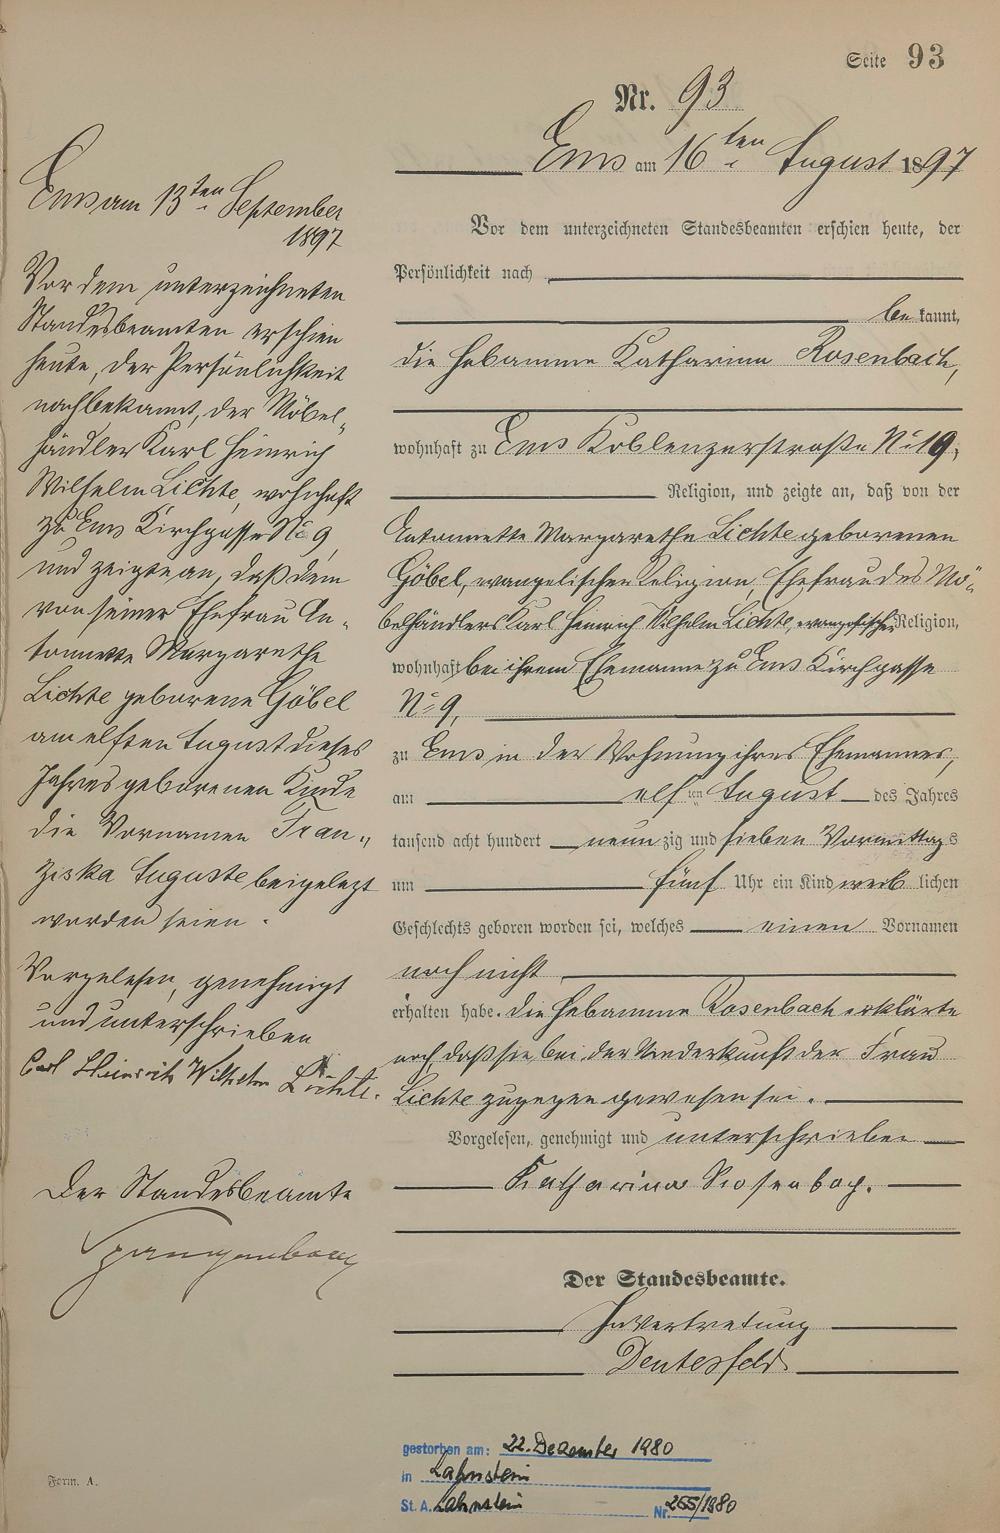 Seite 93
Nr. 93
Ems am 16ten August 1897
Vor dem unterzeichneten Standesbeamten erschien heute, der
Persönlichkeit nach
bekannt,
die Hebamme Katharina Rosenbach,
wohnhaft zu Ems Koblenzerstraße No 19,
Religion, und zeigte an, daß von der
Antonnette Margarethe Lichte geborenen
Göbel, evangelischer Religion, Ehefrau des Mö-
belhändlers Karl Heinrich Wilhelm Lichte, evangelischer Religion,
wohnhaft bei ihrem Ehemanne zu Ems Kirchgasse
No 9,
zu Ems in der Wohnung ihres Ehemannes,
am elften August des Jahres
tausend acht hundert neunzig und sieben Vormittags
um fünf Uhr ein Kind weiblichen
Geschlechts geboren worden sei, welches einen Vornamen
noch nicht
erhalten habe. Die Hebamme Rosenbach erklärte
noch, daß sie bei der Niederkunft der Frau
Lichte zugegen gewesen sei.
Vorgelesen, genehmigt und unterschrieben
Katharina Rosenbach.
Der Standesbeamte.
In Vertretung
Ems am 13ten September
1897
Vor dem unterzeichneten
Standesbeamten erschien
heute, der Persönlichkeit
nach bekannt, der Möbel-
händler Karl Heinrich
Wilhelm Lichte, wohnhaft
zu Ems Kirchgasse No 9,
und zeigte an, daß dem
von seiner Ehefrau An-
tonnette Margarethe
Lichte geborene Göbel
am elften August dieses
Jahres geborenen Kinde
die Vornamen Fran-
ziska Auguste beigelegt
worden seien.
Vorgelesen, genehmigt
und unterschrieben
Carl Heinrich Wilhelm Lichte.
Der Standesbeamte
Spangenberg
gestorben am: 22. Dezember 1980
in Lahnstein
St. A. Lahnstein Nr. 265/1980
Form. A.